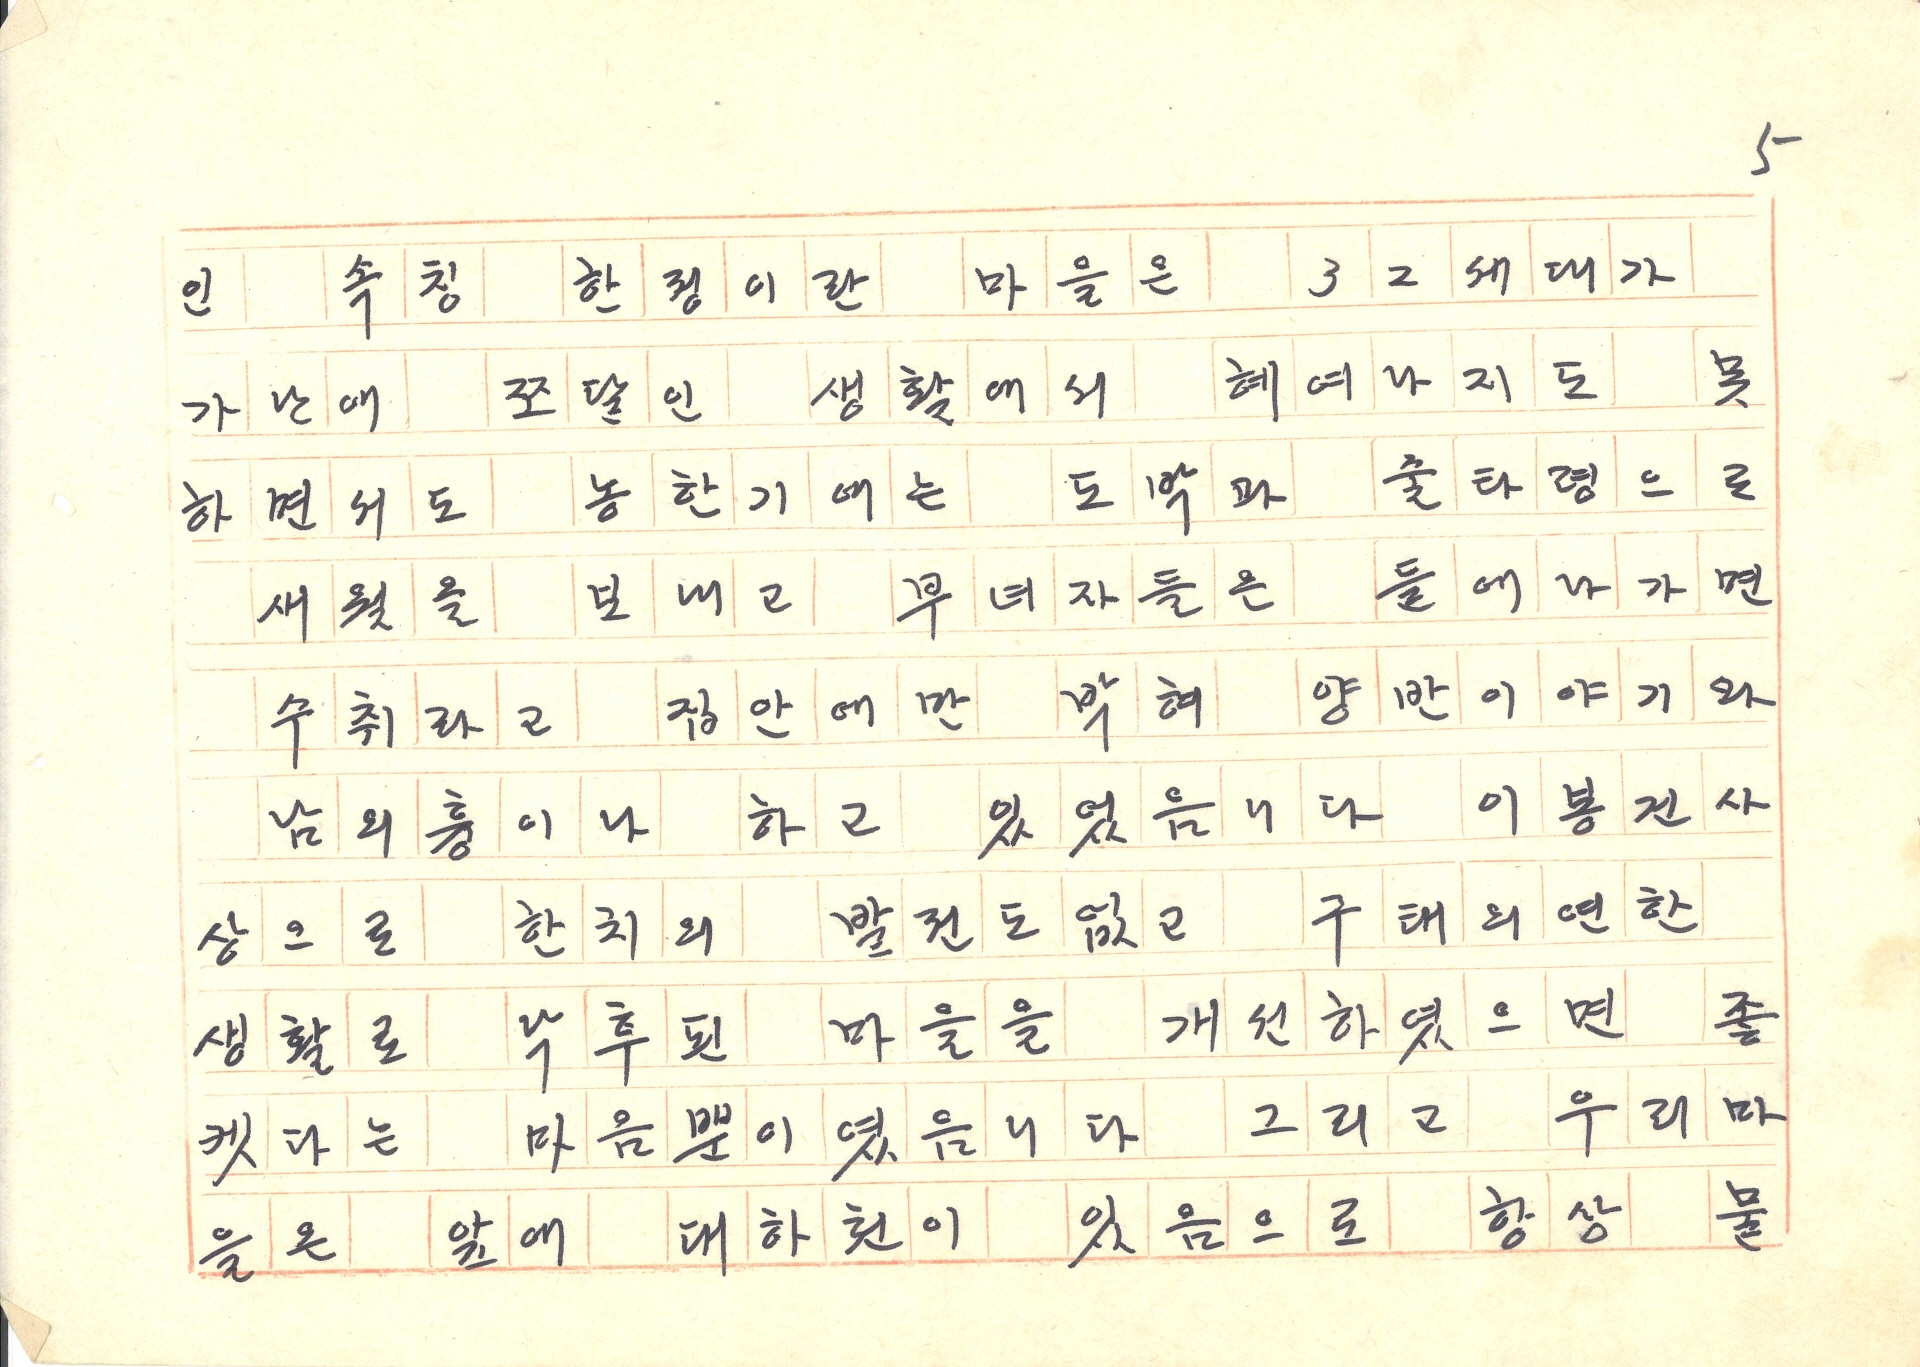 5
인 속칭 한정이란 마을은 32세대가
가난애 쪼달인 생활애서 혜여나지도 못
하면서도 농한기애는 도박과 술타령으로
새웟을 보내고 부녀자들은 들에나가면
수취라고 집안애만 박혀 양반이야기와
남의흉이나 하고 있었음니다 이봉건사
상으로 한치의 발전도없고 구태의연한
생활로 낙후된 마을을 개선하였으면 좋
켓다는 마음뿐이였음니다 그리고 우리마
을은 앞애 대하천이 있음으로 항상 물